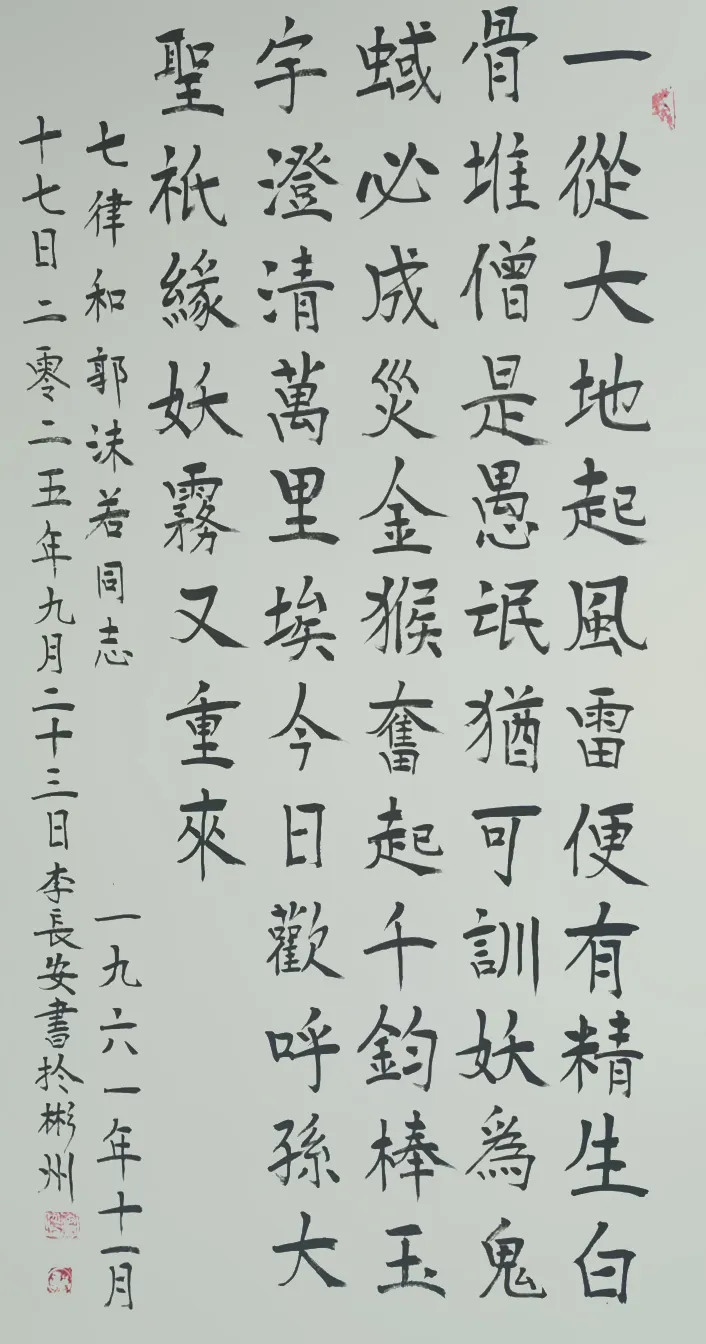 一從大地起風雷便有精生白
骨堆僧是愚氓猶可訓妖為鬼
蜮必成災金猴奮起千鈞棒玉
宇澄清萬里埃今日歡呼孫大
聖祇緣妖霧又重來
七律和郭沫若同志 一九六一年十一月
十七日二零二五年九月二十三日李長安書於彬州